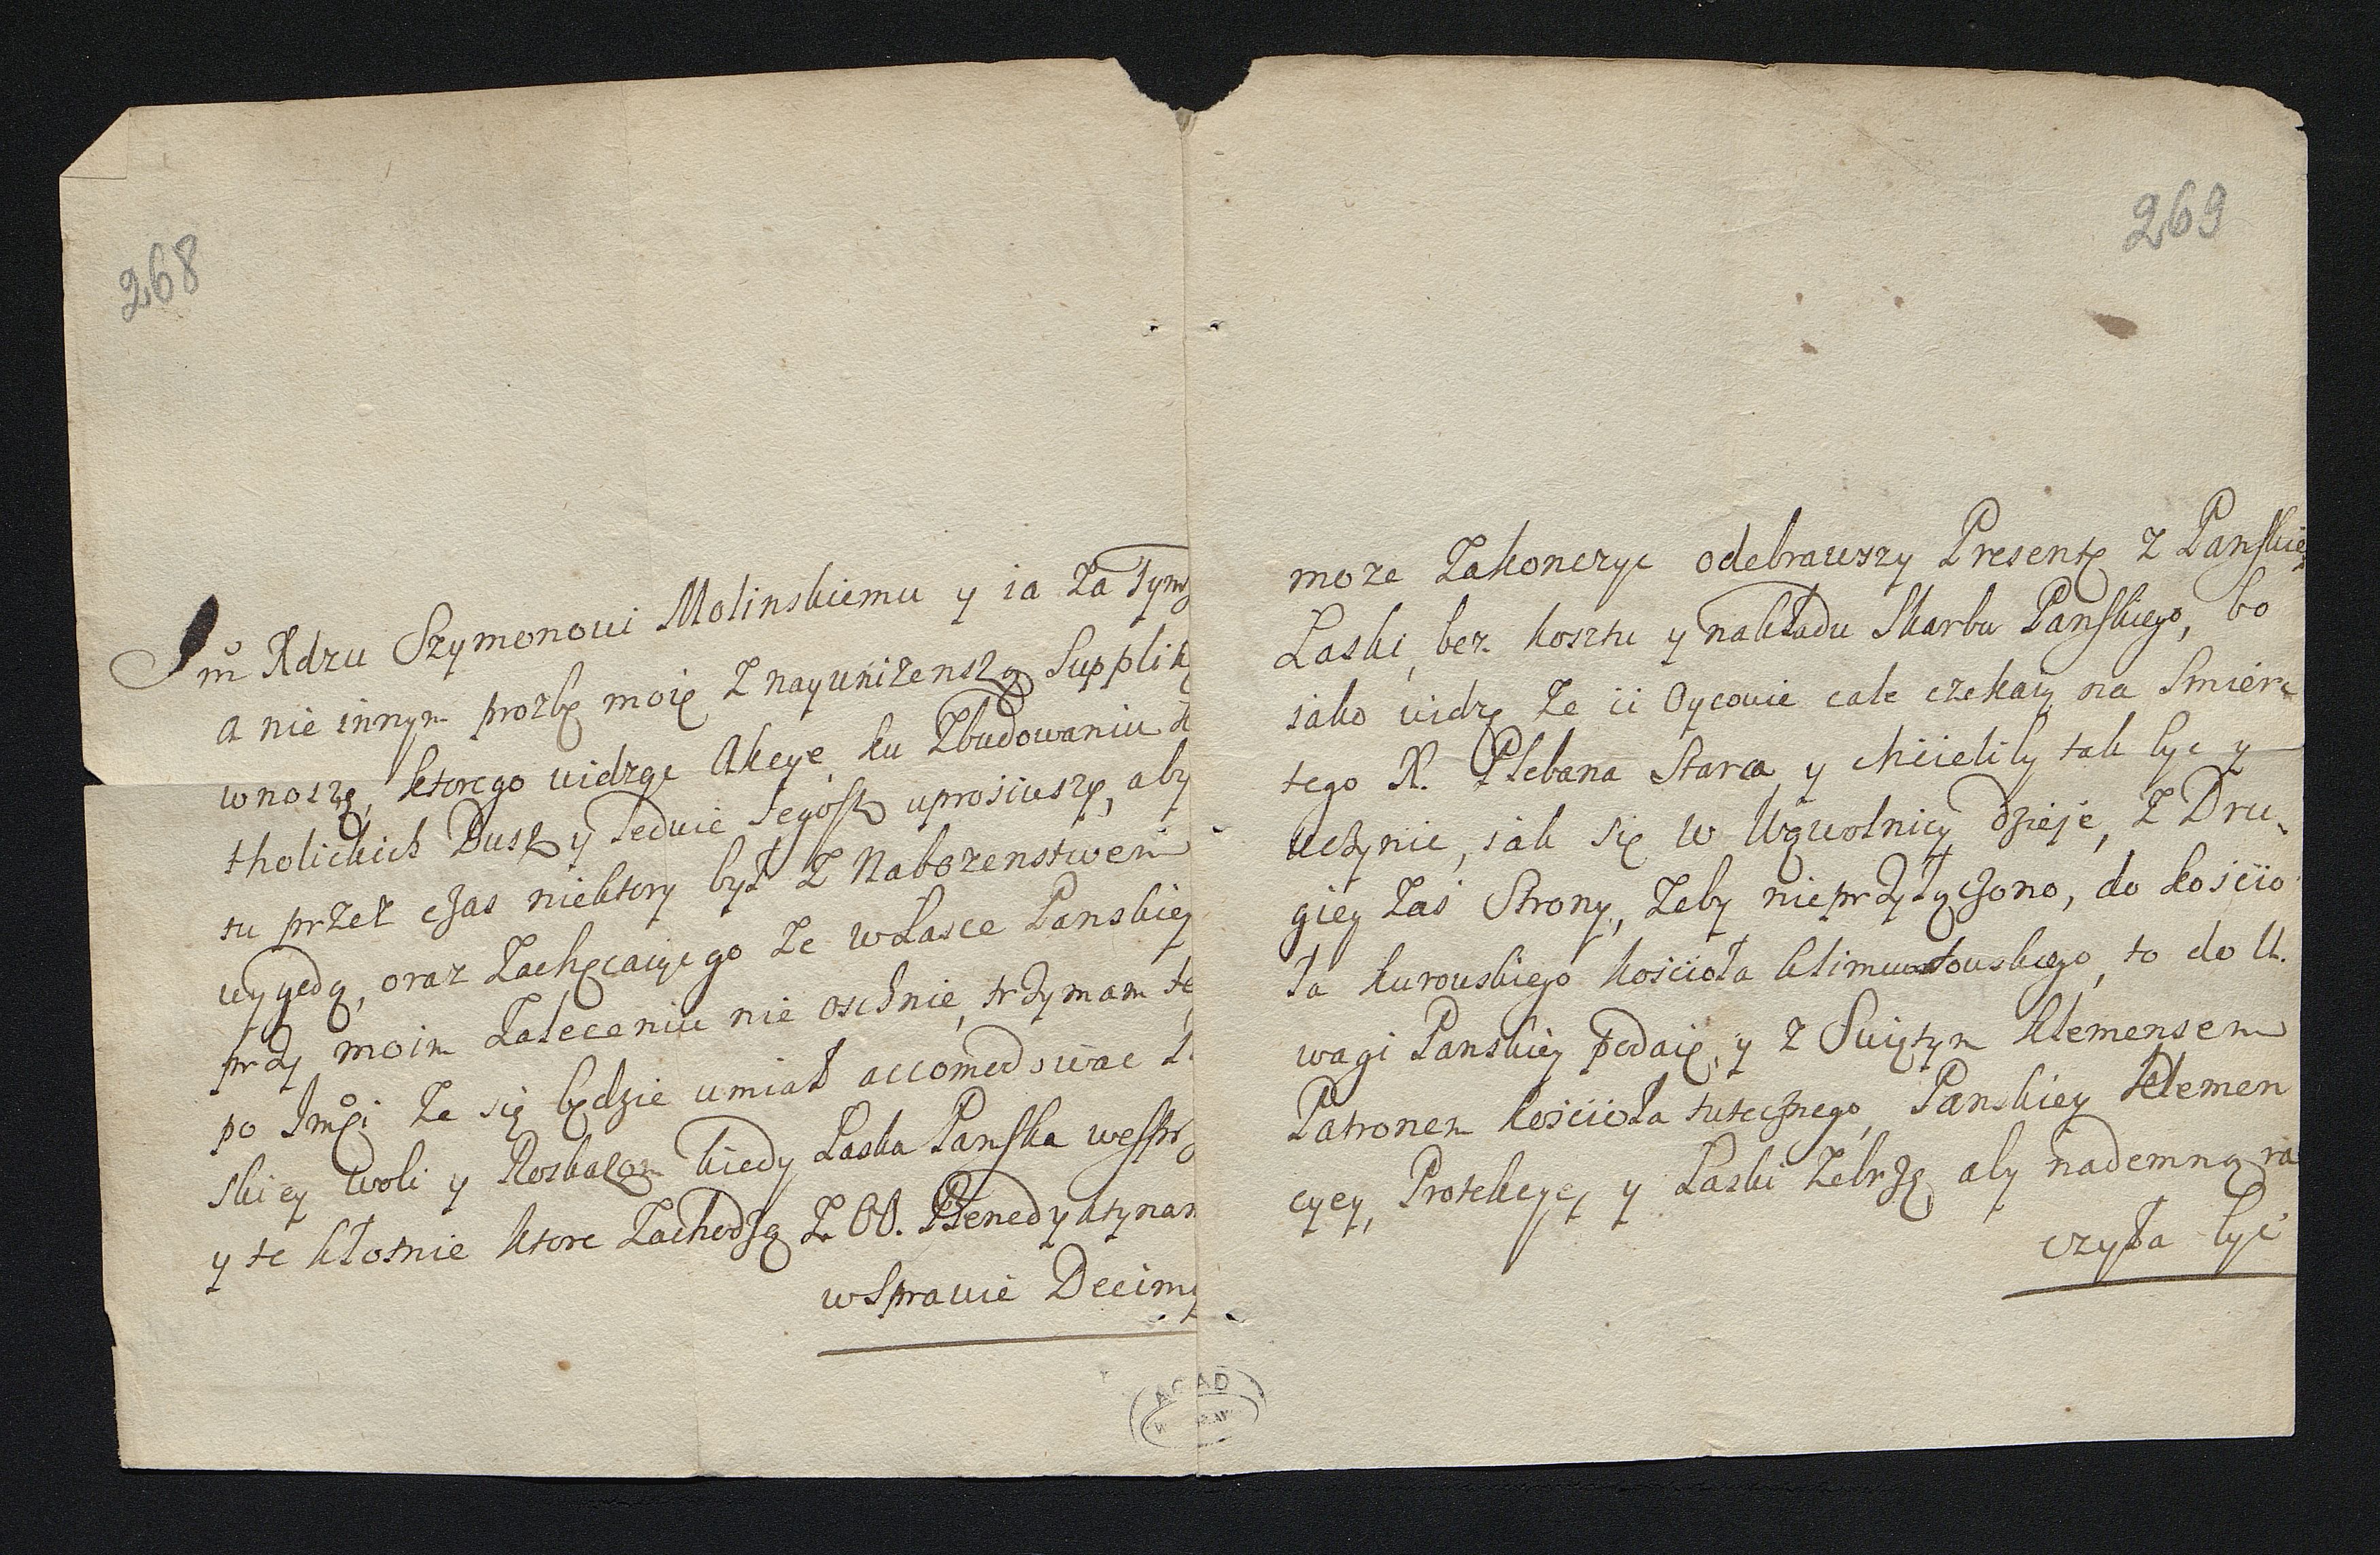 268
Jmo Xdzu Szymonowi Molinskiemu y ia za Tym
a nie innym prozbę moię z nayunizenszą Supplik
wnoszę, ktorego widząc Akcye, ku Zbudowaniu
tholickich Dusz y ledwie Jegosz uprosiwszy, aby
tu przez czas niektory był z Nabozenstwem
wygodą, oraz Zachęcaiąc go ze w Łasce Panskiey
przy moim Zaleceniu nie oschnie, trzymam
po Jmci ze się będzie umiał accomodowac
skiey woli y Roskazom kiedy Łaska Panska wesprz
y te kłotnie ktore Zachodzą z OO. Benedyktynam
w Sprawie Decimy
269
moze Zakonczyc odebrawszy Presentę z Panskie
Łaski, bez kosztu y nakładu Skarbu Panskiego, bo
iako widzę ze ii Oycowie cale czekaią na Smierc
tego X. Plebana Starca, y chcieliby tak byc y
uczynic, iak się w Uzwolnicy dzieje, z Dru-
giey zas Strony, zeby nieprzyłączono, do koscio
ła kurowskiego kościoła klimuntowskiego, to do U.
wagi Panskiey podaię, y z Swiętym klemensem
Patronem kościoła tuteyszego, Panskiey klemen
cyey, Protekcyey y Łaski zebrzę, aby nademną ra
czyła być
AGAD